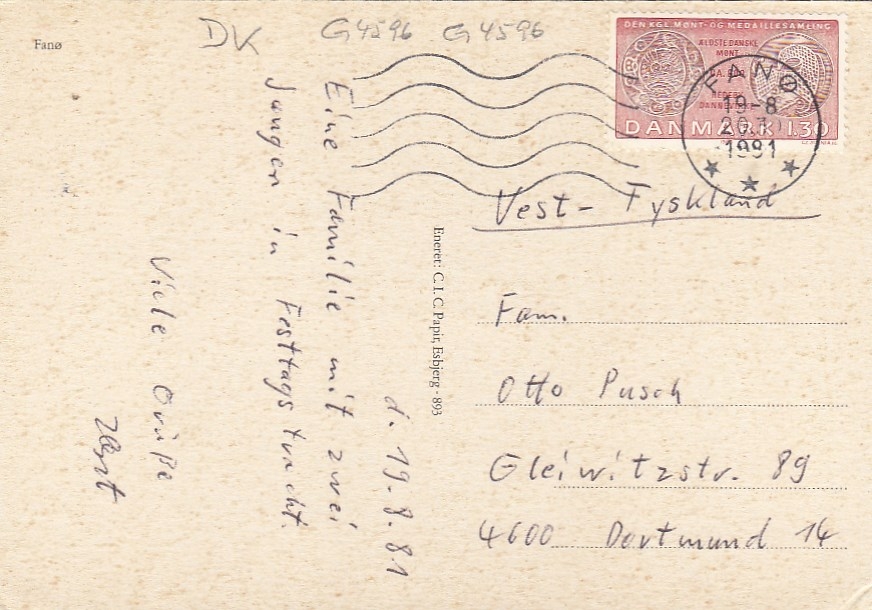 Fanø
DK G4596 G4596
DEN KGL. MØNT- OG MEDAILLESAMLING
ÆLDSTE DANSKE
MØNT
DANMARK 1.30
FANØ
19-8
1981
d. 19.8.81
Eine Familie mit zwei
Jungen in Festtagstracht.
Viele Grüße
Eneret: C. I. C. Papir, Esbjerg - 893
Vest- Tyskland
Fam.
Otto Pusch
Gleiwitzstr. 89
4600 Dortmund 14